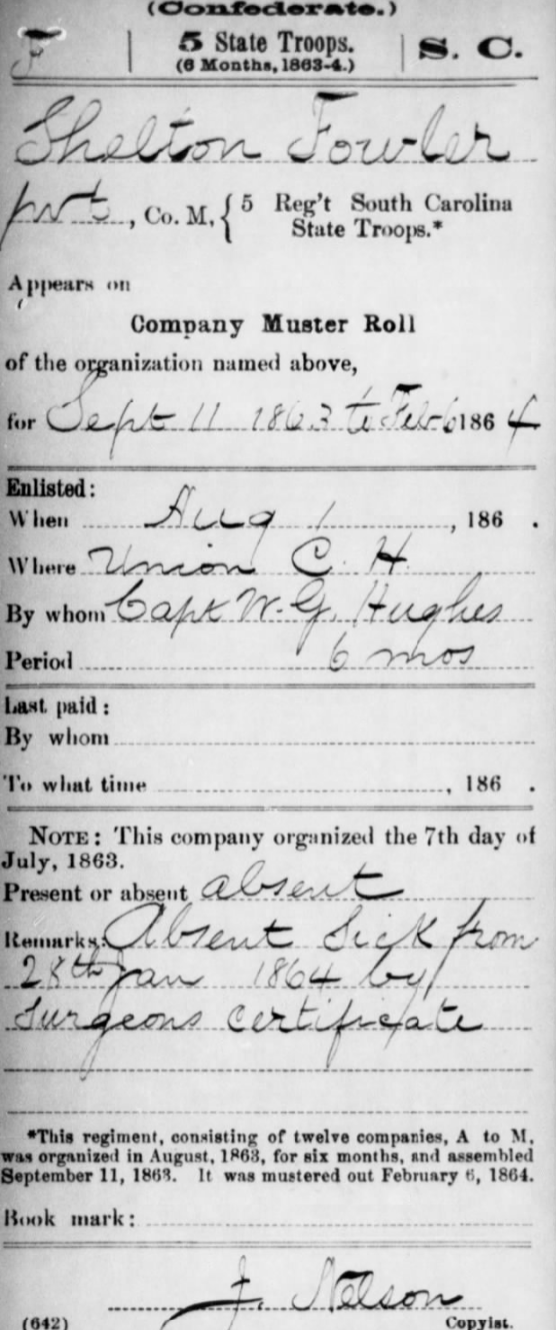 (Confederate.)
F | 5 State Troops. | S. C.
(6 Months, 1863-4.)
Shelton Fowler
pvt, Co. M, { 5 Reg't South Carolina
State Troops.*
Appears on
Company Muster Roll
of the organization named above,
for Sept 11 1863 to Feb 6 1864
Enlisted:
When Aug 1, 186 .
Where Union C. H.
By whom Capt W. G. Hughes
Period 6 mos
Last paid:
By whom
To what time , 186 .
NOTE: This company organized the 7th day of
July, 1863.
Present or absent absent
Remarks: Absent Sick from
28th Jan 1864 by
Surgeons certificate
*This regiment, consisting of twelve companies, A to M,
was organized in August, 1863, for six months, and assembled
September 11, 1863. It was mustered out February 6, 1864.
Book mark:
J. Nelson
(642) Copyist.